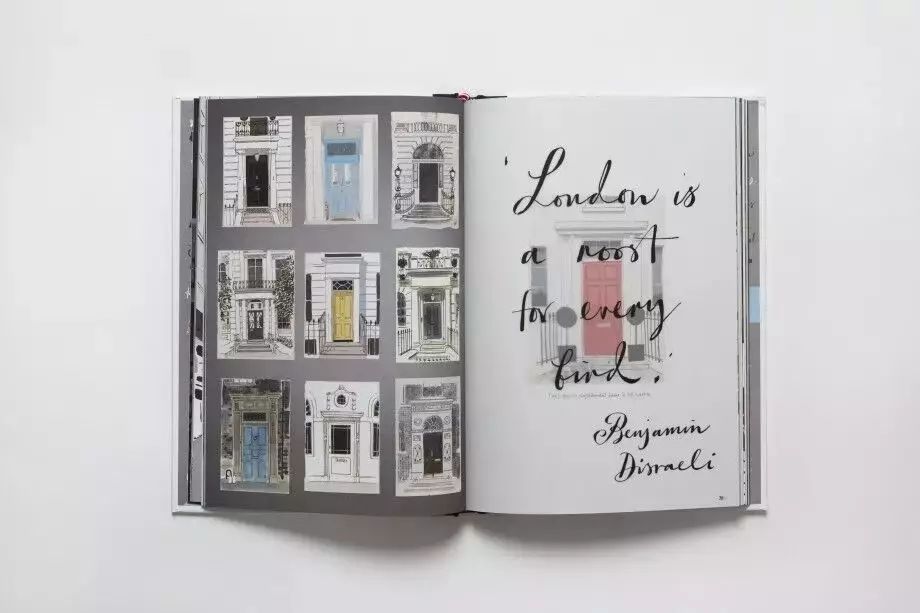 'London is
a roost
for every
bird.'
Benjamin
Disraeli